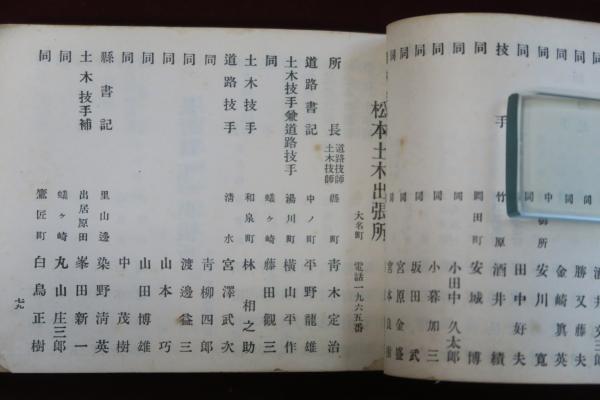 同 酒井文三郎
同 同 勝又藤夫
同 同 金崎眞英
同 安川寛
同 同 田中好夫
技手 竹原 酒井績
同 岡田町 安城博
同 同 小田中久太郎
同 同 小暮加三
同 同 坂田武
同 同 宮原金盛
同 同 宮本良樹
松本土木出張所
大名町 電話一九六五番
所長 道路技師 土木技師 縣町 青木定治
道路書記 中ノ町 平野龍雄
土木技手兼道路技手 湯川町 横山平作
同 蟻ヶ崎 藤田觀三
土木技手 和泉町 林相之助
道路技手 清水 宮澤武次
同 青柳四郎
同 渡邊益三
同 山本巧
同 山田博雄
同 中茂樹
縣書記 里山邊 染野清英
土木技手補 出居原田 峯田新一
同 蟻ヶ崎 丸山庄三郎
同 鷹匠町 白鳥正樹
一九